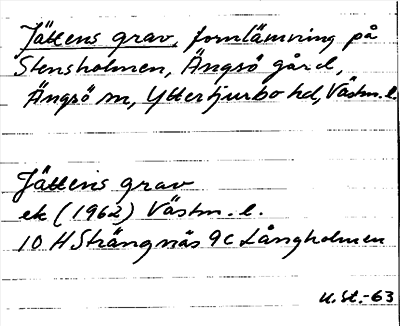 Jättens grav, fornlämning på
Stensholmen, Ängsö gård,
Ängsö sn, Yttertjurbo hd, Västm. l.
Jättens grav
ek (1962) Västm. l.
10 H Strängnäs 9c Långholmen
U.St.-63